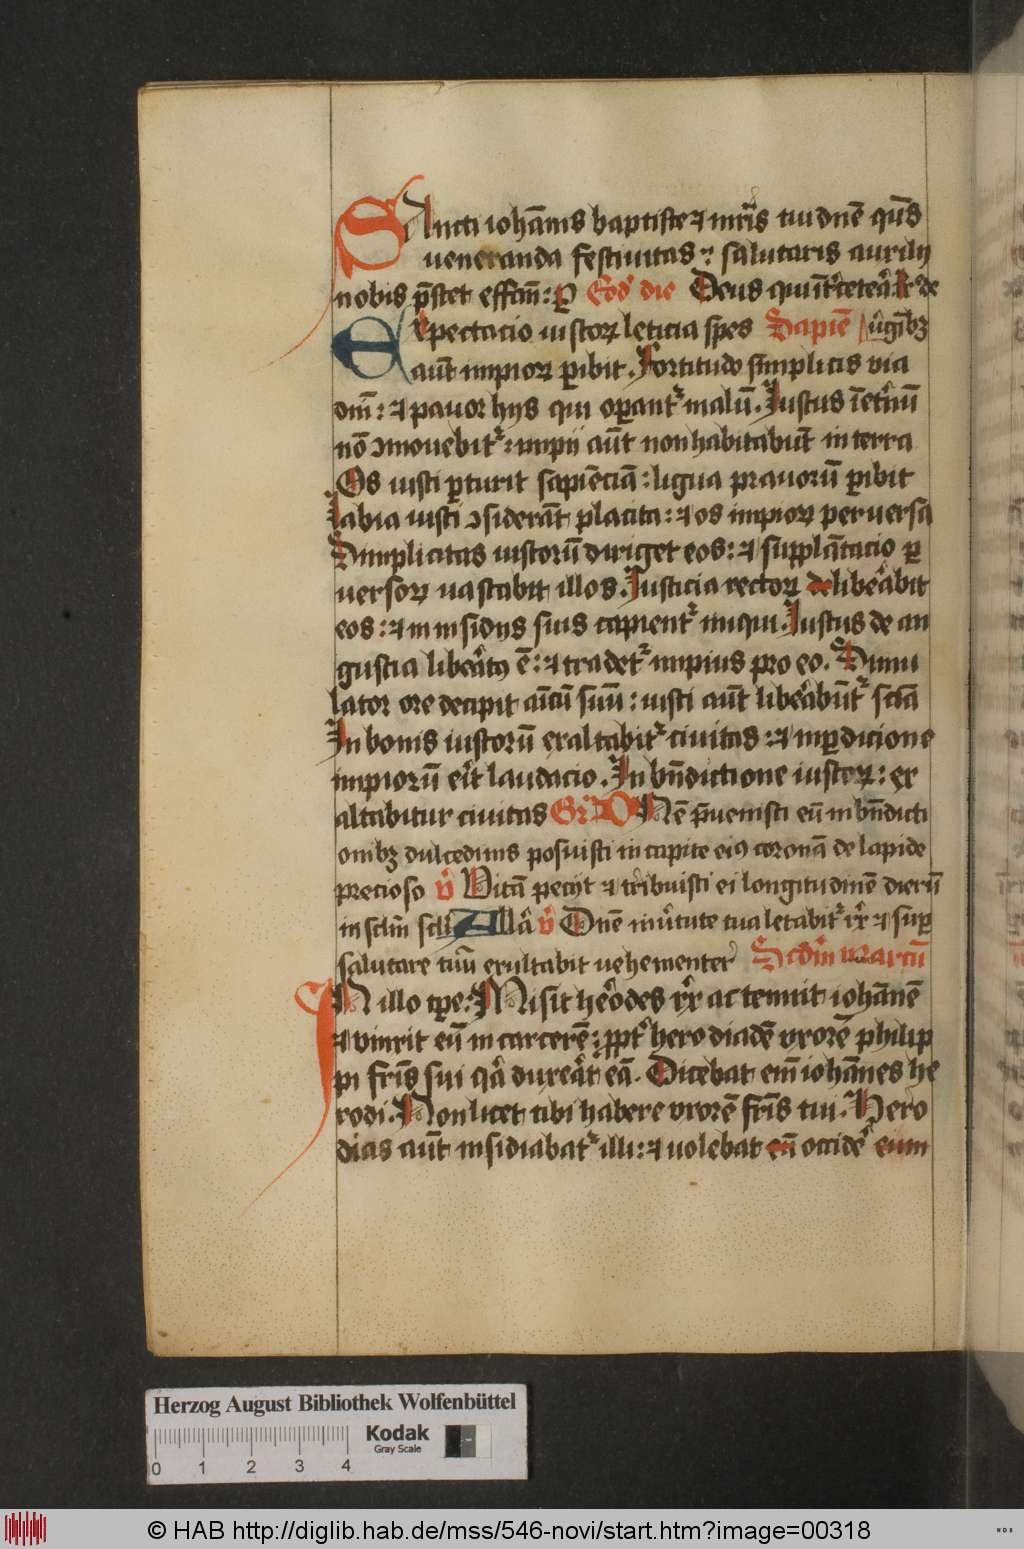 SAncti ioha̅nis baptiste ⁊ mr̅is tui dn̅e qu̅s
ueneranda festiuitas ⁊ salutaris auxilij
nobis p̅stet effc̅m: ꝑ Eod̅ die Deus qui
EXpectacio iustoꝝ leticia spes Sapien̅
aut̅ impioꝝ ꝑibit. Fortitudo simplicis via
dn̅i: ⁊ pauor hijs qui oꝑant᷑ malu̅. Iustus i̅ et̓nu̅
no̅ ꝯmouebit᷑: impii aut̅ non habitabu̅t in terra
Os iusti ꝑturit sapie̅cia̅: ligua prauoru̅ ꝑibit
labia iusti ꝯsidera̅t placita: ⁊ os impioꝝ peruersa
Simplicitas iustoru̅ diriget eos: ⁊ suppla̅tacio ꝑ
uersoꝝ uastabit illos. Iusticia rectoꝝ de libe᷑abit
eos: ⁊ in insidijs suis capient᷑ iniqui. Iustus de an
gustia libe᷑atꝰ e̅: ⁊ tradet᷑ impius pro eo. Simu
lator ore decipit ai̅cu̅ suu̅: iusti aut̅ libe᷑abu̅t᷑ sci̅a
In bonis iustoru̅ exaltabit᷑ ciuitas: ⁊ in ꝑdicione
impioru̅ er̅it laudacio. In bn̅dictione iustoꝝ: ex
altabitur ciuitas Gr̅ DNe̅ p̅uenisti eu̅ in bn̅dicti
onibꝫ dulcedinis posuisti in capite eiꝰ corona̅ de lapide
precioso v̓ Vita̅ peciit ⁊ tribuisti ei longitudine̅ dieru̅
in scl̅m scl̅i All̅a v̓ Dn̅e in ui᷑tute tua letabit᷑ rx̅ ⁊ suꝑ
salutare tuu̅ exultabit uehementer Scd̅m Marcu̅
IN illo tp̅e: Misit he᷑odes rx̅ ac tenuit ioha̅ne̅
⁊ vinxit eu̅ in carcere̅: ꝓpt̓ herodiade̅ vxore̅ philip
pi fr̅is sui q̓a duxe᷑at ea̅. Dicebat em̅ ioha̅nes he
rodi. Non licet tibi habere vxore̅ fr̅is tui. Hero
dias aut̅ insidiabat᷑ illi: ⁊ uolebat eu̅ occide᷑ eum
Herzog August Bibliothek Wolfenbüttel
Kodak
Gray Scale
0 1 2 3 4
© HAB http://diglib.hab.de/mss/546-novi/start.htm?image=00318